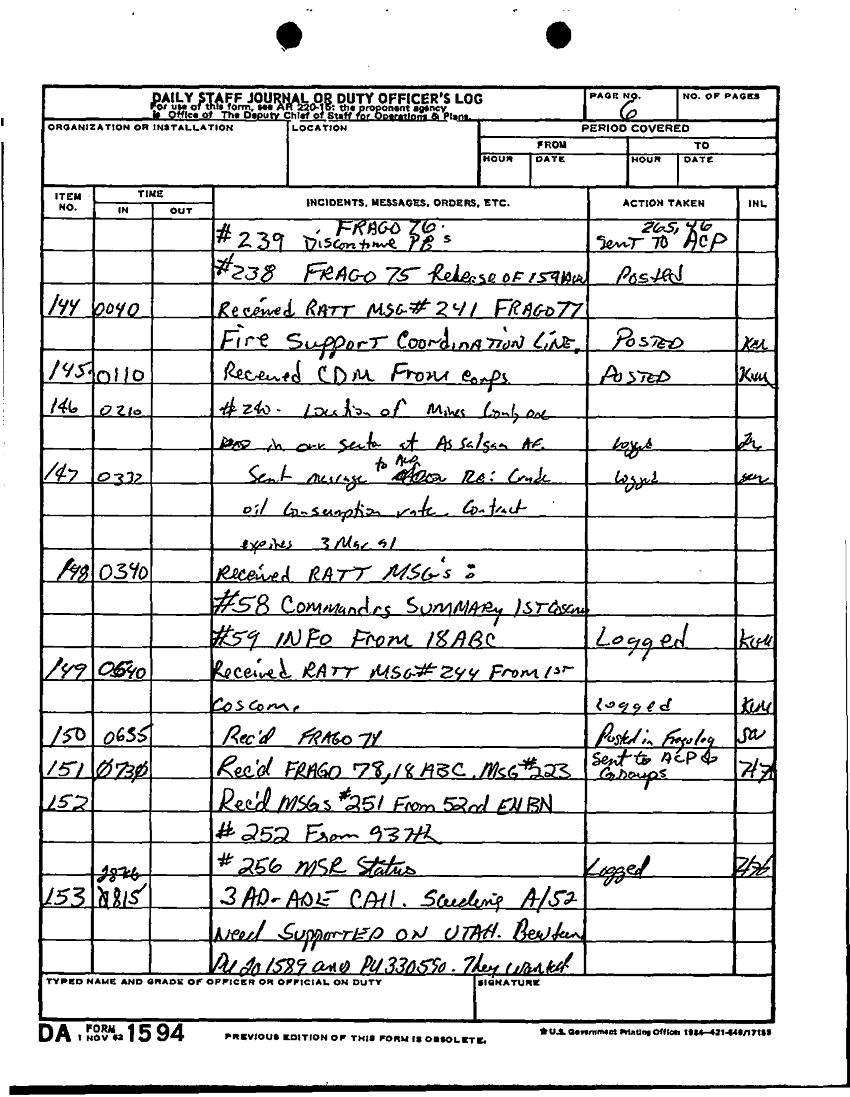 DAILY STAFF JOURNAL OR DUTY OFFICER'S LOG
For use of this form, see AR 220-15; the proponent agency
is Office of The Deputy Chief of Staff for Operations & Plans.
PAGE NO.
6
NO. OF PAGES
ORGANIZATION OR INSTALLATION
LOCATION
PERIOD COVERED
FROM
TO
HOUR DATE HOUR DATE
ITEM NO.
TIME
IN OUT
INCIDENTS, MESSAGES, ORDERS, ETC.
ACTION TAKEN
INL
FRAGO 76. 265, 46
#239 Discontinue PB's Sent TO ACP
#238 FRAGO 75 Release OF 159 Posted
144 0040 Received RATT MSG# 241 FRAGO 77
Fire Support Coordination LINE, POSTED
145 0110 Received CDM From corps POSTED
146 0210 #240. Location of Mines
in our sector at As Salman AF. Logged
147 0332 Sent message to ACP Re: Crude Logged
oil Consumption rate. Contract
expires 3 Mar 91
148 0340 Received RATT MSG's :
#58 Commandrs SUMMARY 1ST Coscom
#59 INFO From 18 ABC Logged
149 0540 Received RATT MSG# 244 From 1ST
Coscom. Logged
150 0635 Rec'd FRAGO 74 Posted in Frago log
151 0730 Rec'd FRAGO 78, 18 ABC. MSG #223 Sent to ACP & Groups
152 Rec'd MSGs #251 From 52nd EN BN
#252 From 937th
#256 MSR Status Logged
153 0815 3 AD-ADE CAll. A/52
Need Supported ON UTAH.
PU 201589 and PU 330590. They wanted
TYPED NAME AND GRADE OF OFFICER OR OFFICIAL ON DUTY
SIGNATURE
DA FORM 1 NOV 62 1594
PREVIOUS EDITION OF THIS FORM IS OBSOLETE.
☆ U.S. Government Printing Office: 1984-421-646/17155